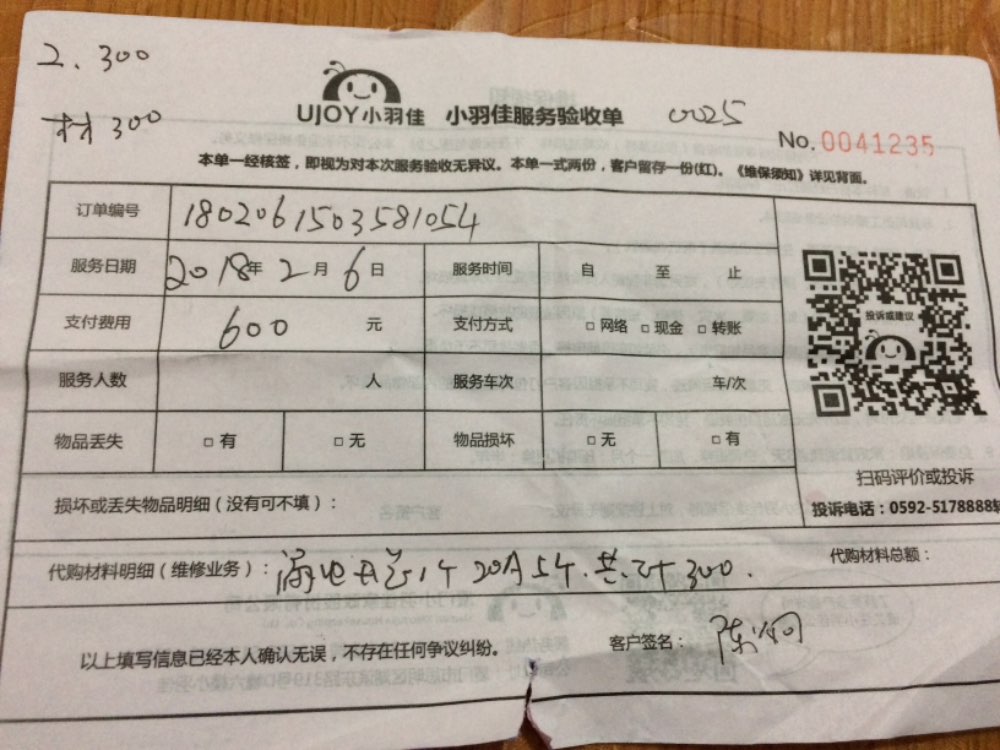 2、300
材300
UJOY小羽佳 小羽佳服务验收单 0025
No. 0041235
本单一经核签，即视为对本次服务验收无异议。本单一式两份，客户留存一份(红)。《维保须知》详见背面。
订单编号 1802061503581054
服务日期 2018年 2月 6日 服务时间 自 至 止
投诉或建议
支付费用 600 元 支付方式 □网络 □现金 □转账
服务人数 人 服务车次 车/次
物品丢失 □有 □无 物品损坏 □无 □有
扫码评价或投诉
损坏或丢失物品明细（没有可不填）：
投诉电话：0592-5178888转
代购材料明细（维修业务）：漏电开关1个 20A 5个.共计300.
代购材料总额：
以上填写信息已经本人确认无误，不存在任何争议纠纷。
客户签名：陈